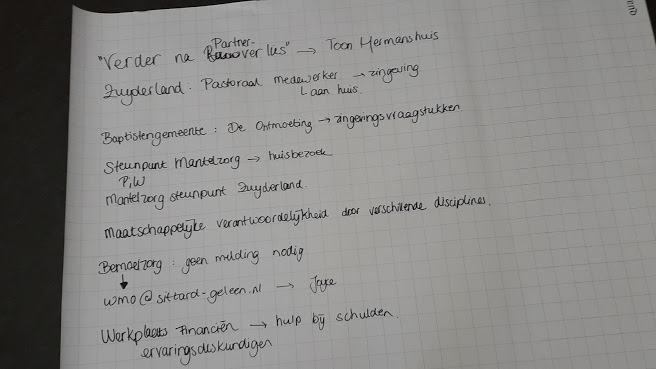 "Verder na Partnerverlus" → Toon Hermanshuis
Zuyderland: Pastoraal medewerker → zingeving
↳ aan huis.
Baptistengemeente: De Ontmoeting → zingevingsvraagstukken
Steunpunt Mantelzorg → huisbezoek
PIW
Mantelzorg steunpunt Zuyderland.
Maatschappelijke verantwoordelijkheid door verschillende disciplines.
Bemoeizorg: geen melding nodig
↓
wmo@sittard-geleen.nl →
Werkplaats Financiën → hulp bij schulden.
ervaringsdeskundigen